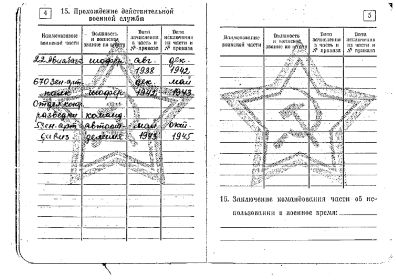 4
15. Прохождение действительной
военной службы
Наименование воинской части
Должность и воинское звание по штату
Дата зачисления в часть и № приказа
Дата исключения из части и № приказа
22 Авиабаза шофер авг. дек.
1938 1942
670 Зен. арт. дек. май
полк шофер 1942 1943
разведки команд.
5 Зен. арт. май окт
дивиз 1943 1945
5
Наименование воинской части
Должность и воинское звание по штату
Дата зачисления в часть и № приказа
Дата исключения из части и № приказа
16. Заключение командования части об ис-
пользовании в военное время: